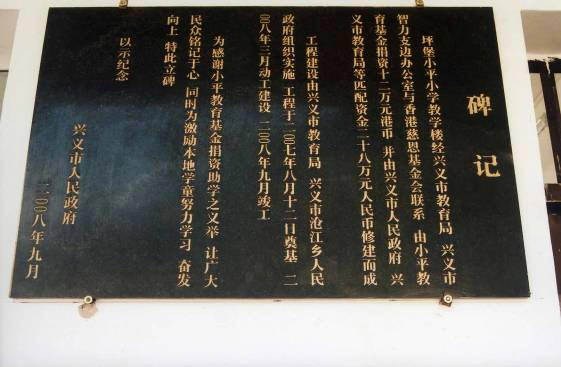 碑记
坪堡小平小学教学楼经兴义市教育局 兴义市
智力支边办公室与香港慈恩基金会联系 由小平教
育基金捐资十二万元港币 并由兴义市人民政府 兴
义市教育局等匹配资金二十八万元人民币修建而成
工程建设由兴义市教育局 兴义市沧江乡人民
政府组织实施 工程于二〇〇七年八月十二日奠基 二
〇〇八年三月动工建设 二〇〇八年九月竣工
为感谢小平教育基金捐资助学之义举 让广大
民众铭记于心 同时为激励本地学童努力学习 奋发
向上 特此立碑
以示纪念
兴义市人民政府
二〇〇八年九月